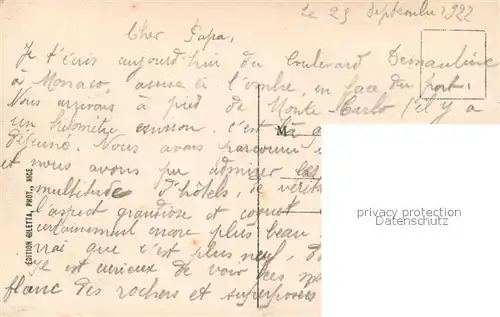 Le 25 Septembre 1922
Cher Papa,
Je t'écris aujourd'hui du boulevard
à Monaco, assise à l'ombre, en face du port.
Nous arrivons à pied de Monte-Carlo (il y a
un kilomètre environ. c'est là
déjeuné. Nous avons parcouru
et nous avons pu admirer les
multitude d'hôtels, de
l'aspect grandiose et
certainement encore plus beau.
vrai que c'est plus neuf,
Je est curieux de voir ces
flanc des rochers et superposées
ÉDITION GILETTA, PHOT., NICE
privacy protection
www.oldthing.de